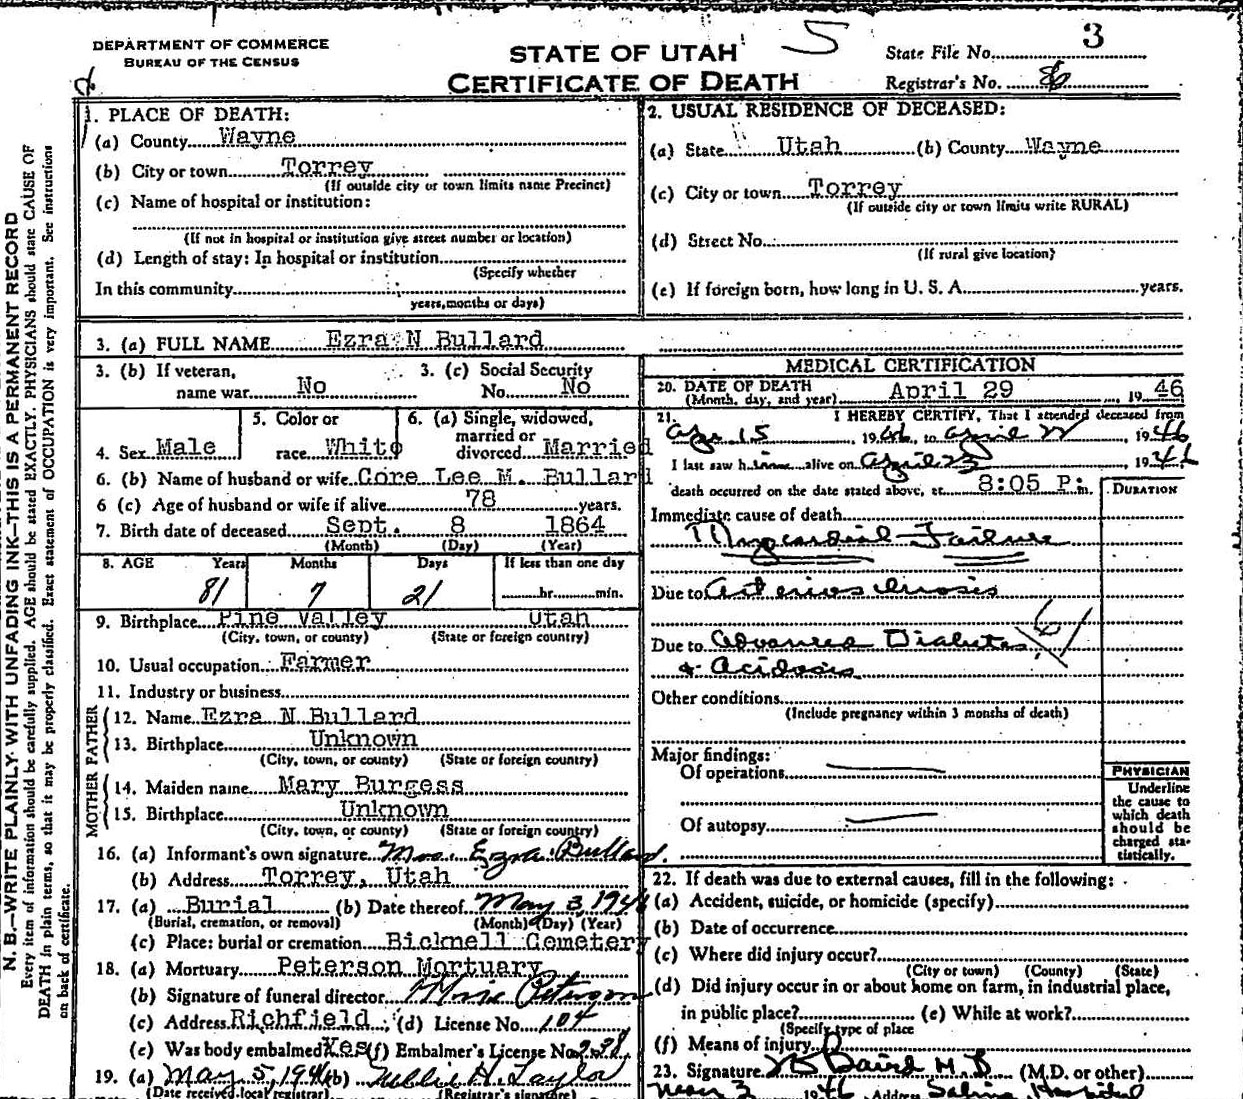 DEPARTMENT OF COMMERCE
BUREAU OF THE CENSUS
STATE OF UTAH
CERTIFICATE OF DEATH
5
State File No. 3
Registrar's No. 8
1. PLACE OF DEATH:
(a) County Wayne
(b) City or town Torrey
(If outside city or town limits name Precinct)
(c) Name of hospital or institution:
(If not in hospital or institution give street number or location)
(d) Length of stay: In hospital or institution
(Specify whether
In this community
years, months or days)
2. USUAL RESIDENCE OF DECEASED:
(a) State Utah (b) County Wayne
(c) City or town Torrey
(If outside city or town limits write RURAL)
(d) Street No.
(If rural give location)
(e) If foreign born, how long in U. S. A. years.
3. (a) FULL NAME Ezra N Bullard
3. (b) If veteran, name war No
3. (c) Social Security No. No
4. Sex Male
5. Color or race White
6. (a) Single, widowed, married or divorced Married
6. (b) Name of husband or wife Core Lee M. Bullard
6 (c) Age of husband or wife if alive 78 years.
7. Birth date of deceased Sept. 8 1864
(Month) (Day) (Year)
8. AGE Years Months Days If less than one day
81 7 21 hr. min.
9. Birthplace Pine Valley Utah
(City, town, or county) (State or foreign country)
10. Usual occupation Farmer
11. Industry or business
FATHER
12. Name Ezra N Bullard
13. Birthplace Unknown
(City, town, or county) (State or foreign country)
MOTHER
14. Maiden name Mary Burgess
15. Birthplace Unknown
(City, town, or county) (State or foreign country)
16. (a) Informant's own signature Mrs. Ezra Bullard.
(b) Address Torrey, Utah
17. (a) Burial (b) Date thereof May 3, 1946
(Burial, cremation, or removal) (Month) (Day) (Year)
(c) Place: burial or cremation Bicknell Cemetery
18. (a) Mortuary Peterson Mortuary
(b) Signature of funeral director Peterson
(c) Address Richfield (d) License No. 104
(e) Was body embalmed Yes (f) Embalmer's License No. 238
19. (a) May 5, 1946 (b) Nellie H. Taylor
(Date received local registrar) (Registrar's signature)
MEDICAL CERTIFICATION
20. DATE OF DEATH
(Month, day, and year) April 29, 1946
21. I HEREBY CERTIFY, That I attended deceased from
Apr. 15, 1946, to April 22 1946
I last saw him alive on April 23 1946
death occurred on the date stated above, at 8:05 P.m.
DURATION
Immediate cause of death
Myocardial Failure
Due to Arteriosclerosis
Due to Advanced Diabetes
& Acidosis
61
Other conditions
(Include pregnancy within 3 months of death)
Major findings:
Of operations
Of autopsy
PHYSICIAN
Underline
the cause to
which death
should be
charged sta-
tistically.
22. If death was due to external causes, fill in the following:
(a) Accident, suicide, or homicide (specify)
(b) Date of occurrence
(c) Where did injury occur?
(City or town) (County) (State)
(d) Did injury occur in or about home on farm, in industrial place,
in public place? (e) While at work?
(Specify type of place
(f) Means of injury
23. Signature Baird M.D (M.D. or other)
May 3 1946 Address Salina Hospital
N. B.—WRITE PLAINLY WITH UNFADING INK—THIS IS A PERMANENT RECORD
Every item of information should be carefully supplied. AGE should be stated EXACTLY. PHYSICIANS should state CAUSE OF
DEATH in plain terms, so that it may be properly classified. Exact statement of OCCUPATION is very important. See instructions
on back of certificate.